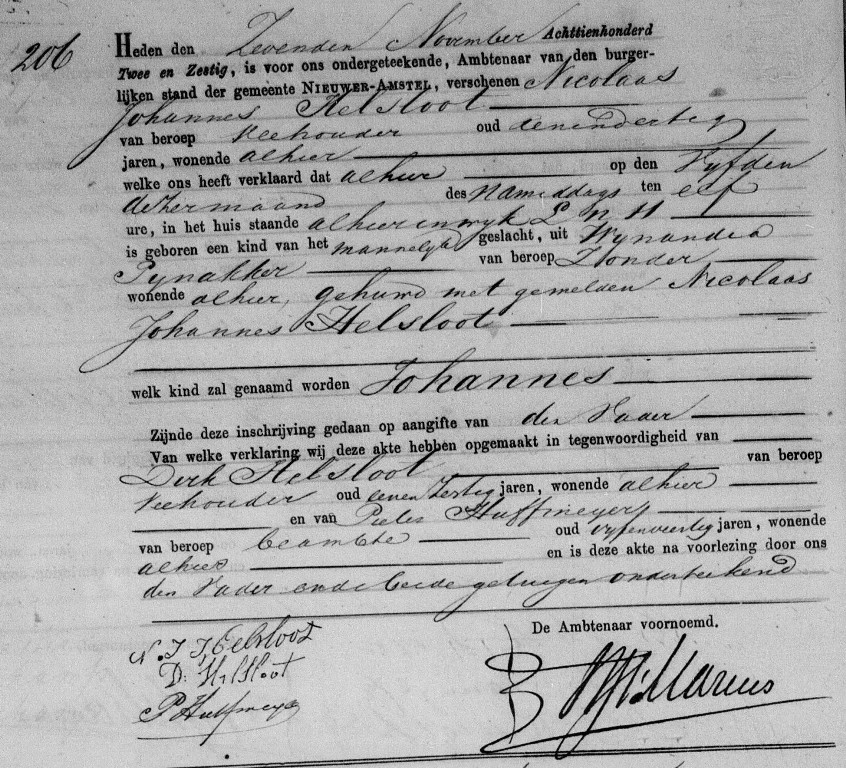 206
Heden den Zevenden November Achttienhonderd
Twee en Zestig, is voor ons ondergeteekende, Ambtenaar van den burger-
lijken stand der gemeente NIEUWER-AMSTEL, verschenen Nicolaas
Johannes Helsloot
van beroep Veehouder oud eenendertig
jaren, wonende alhier
welke ons heeft verklaard dat alhier op den Vyfden
dezer maand des namiddags ten elf
ure, in het huis staande alhier in wyk P n 11
is geboren een kind van het mannelyk geslacht, uit Wynandea
Pynakker van beroep Zonder
wonende alhier, gehuwd met gemelden Nicolaas
Johannes Helsloot
welk kind zal genaamd worden Johannes
Zijnde deze inschrijving gedaan op aangifte van den Vader
Van welke verklaring wij deze akte hebben opgemaakt in tegenwoordigheid van
Dirk Helsloot van beroep
Veehouder oud jaren, wonende alhier
en van Pieter
van beroep beambte oud vyfenveertig jaren, wonende
alhier en is deze akte na voorlezing door ons
den Vader en de beide getuigen onderteekend
De Ambtenaar voornoemd.
N. J. Helsloot
D. Helsloot